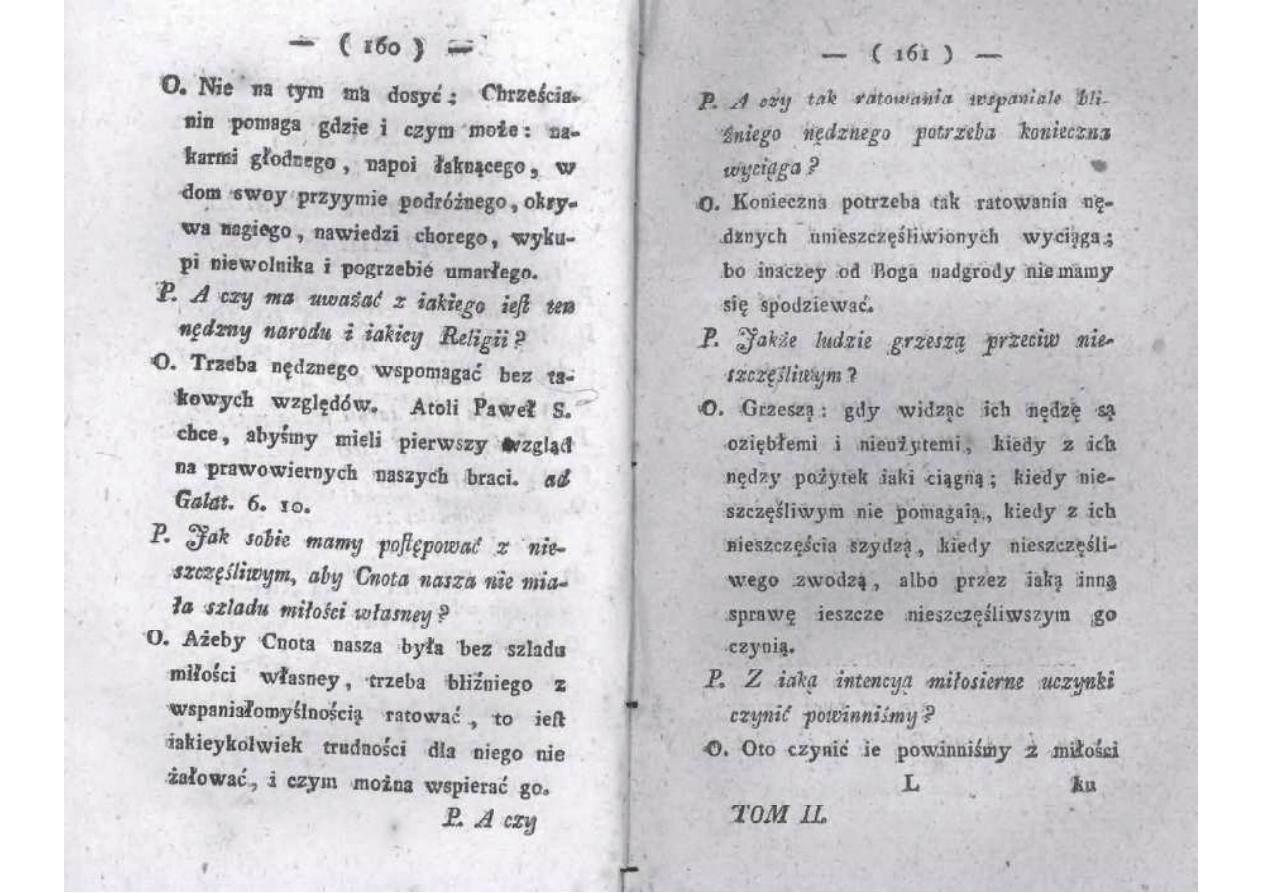 — ( 160 ) —
O. Nie na tym ma dosyć: Chrześcia-
nin pomaga gdzie i czym może: na-
karmi głodnego, napoi łaknącego, w
dom swoy przyymie podróżnego, okry-
wa nagiego, nawiedzi chorego, wyku-
pi niewolnika i pogrzebie umarłego.
P. A czy ma uważać z iakiego ieſt ten
nędzny narodu i iakiey Religii?
O. Trzeba nędznego wspomagać bez ta-
kowych względów. Atoli Paweł S.
chce, abyśmy mieli pierwszy wzgląd
na prawowiernych naszych braci. ad
Galat. 6. 10.
P. Jak sobie mamy poſtępować z nie-
szczęśliwym, aby Cnota nasza nie mia-
ła szladu miłości własney?
O. Ażeby Cnota nasza była bez szladu
miłości własney, trzeba bliźniego z
wspaniałomyślnością ratować, to ieſt
iakieykolwiek trudności dla niego nie
żałować, i czym można wspierać go.
P. A czy
— ( 161 ) —
P. A czy tak ratowania wspaniale bli-
źniego nędznego potrzeba konieczna
wyciąga?
O. Konieczna potrzeba tak ratowania nę-
dznych unieszczęśliwionych wyciąga;
bo inaczey od Boga nadgrody nie mamy
się spodziewać.
P. Jakże ludzie grzeszą przeciw nie-
szczęśliwym?
O. Grzeszą: gdy widząc ich nędzę są
oziębłemi i nieużytemi, kiedy z ich
nędzy pożytek iaki ciągną; kiedy nie-
szczęśliwym nie pomagaią, kiedy z ich
nieszczęścia szydzą, kiedy nieszczęśli-
wego zwodzą, albo przez iaką inną
sprawę ieszcze nieszczęśliwszym go
czynią.
P. Z iaką intencyą miłosierne uczynki
czynić powinniśmy?
O. Oto czynić ie powinniśmy z miłości
L ku
TOM II.